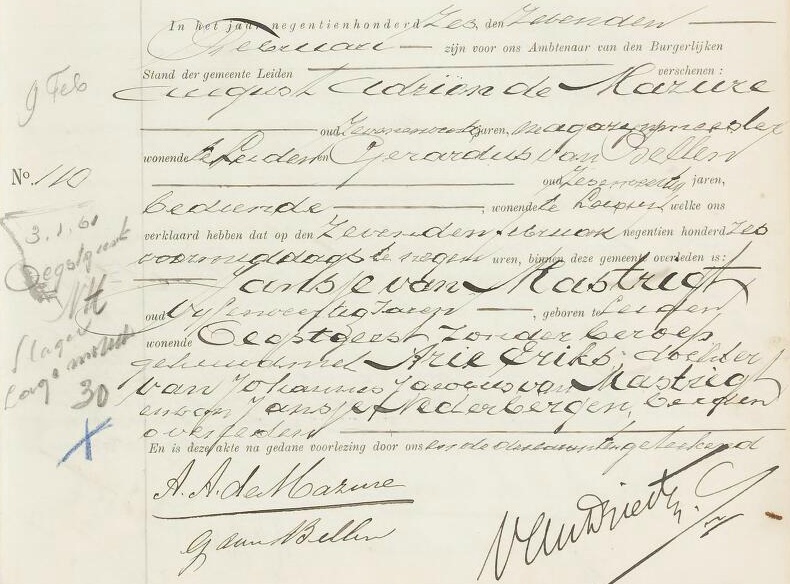 In het jaar negentienhonderd Zes, den Zevenden
Februari zijn voor ons Ambtenaar van den Burgerlijken
Stand der gemeente Leiden verschenen:
August Adriön de Mazure
9 Feb
oud jaren, magazijnmeester
wonende te Leiden en Gerardus van Bellen
No. 110
oud jaren,
bediende, wonende te Leiden welke ons
verklaard hebben dat op den Zevenden februari negentien honderd Zes
voormiddags te negen uren, binnen deze gemeente overleden is:
3.1.61
Oegstgeest
NH
Jansje van Mastrigt
oud Vijfenveertig Jaren, geboren te Leiden
wonende Oegstgeest Zonder beroep
gehuwd met Arie Eriks: dochter
van Johannes Jacobus van Mastrigt
en van Jansje Nederbergen, beiden
overleden
30
En is deze akte na gedane voorlezing door ons en de declaranten geteekend
A. A. de Mazure
G van Bellen